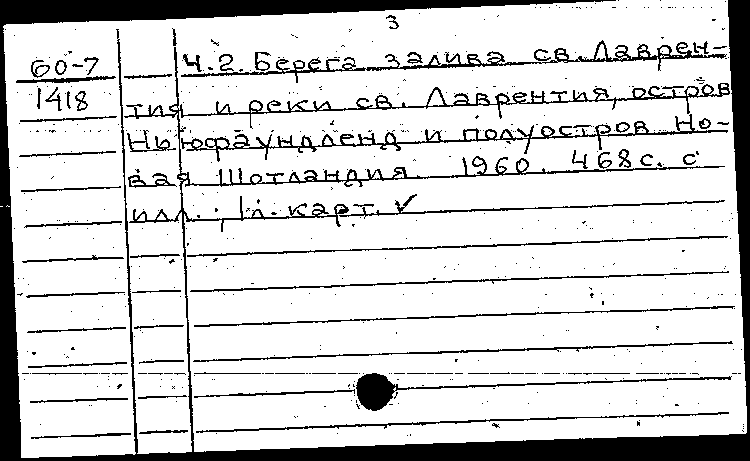 3
60-7 Ч.2. Берега залива св. Лаврен-
1418 тия и реки св. Лаврентия, остров
Ньюфаундленд и полуостров Но-
вая Шотландия. 1960. 468 с. с
илл.; 1 л. карт. ✓